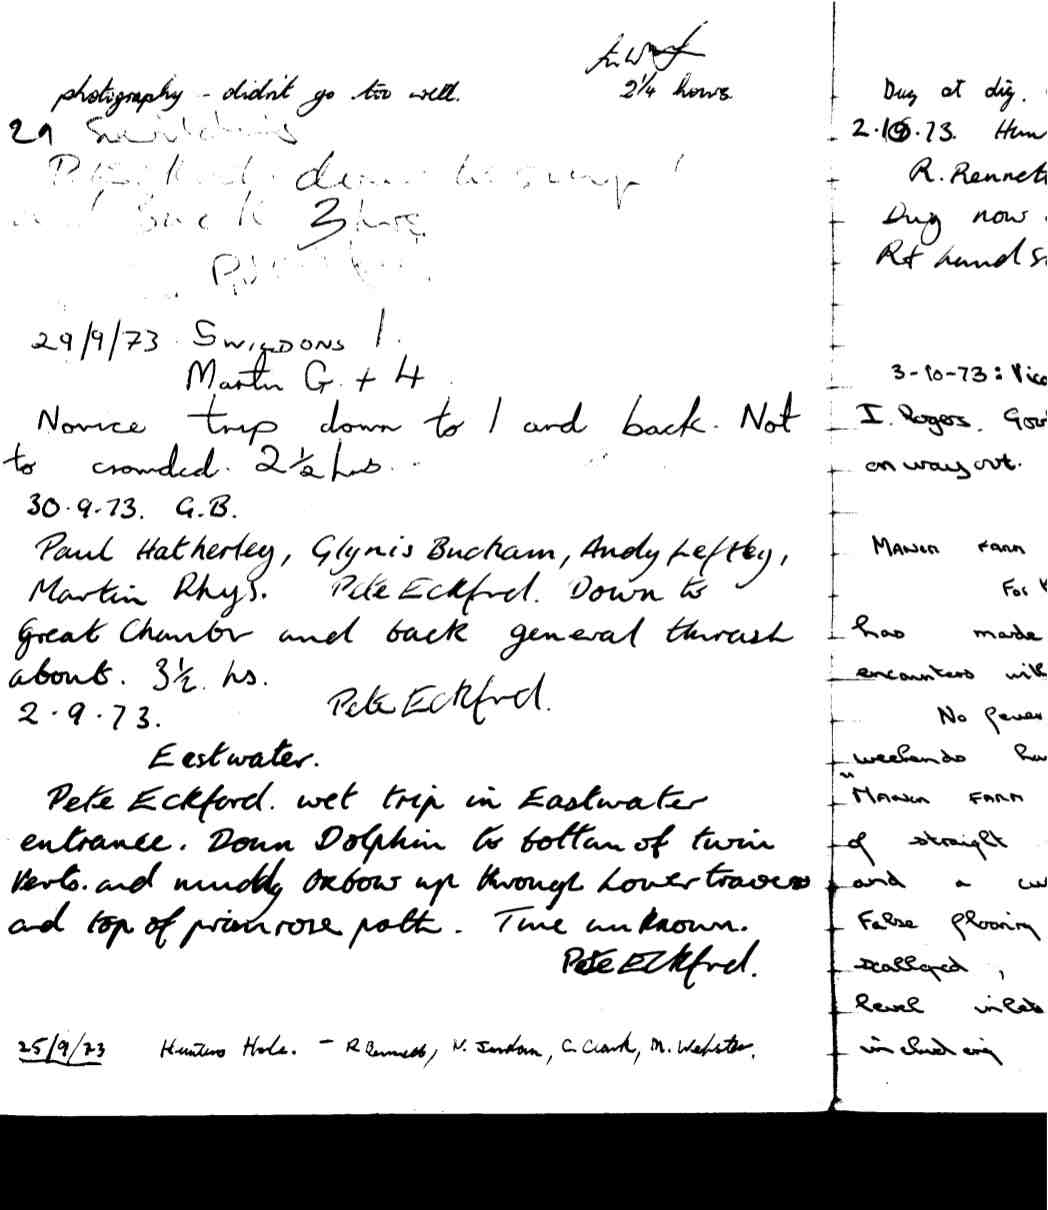 2¼ hours
photography - didn't go too well.
29 Swildons
down to sump 1
and back 3 hrs
29/9/73 SWILDONS 1.
Martin G. + 4
Novice trip down to 1 and back. Not
to crowded. 2½ hrs.
30.9.73. G.B.
Paul Hatherley, Glynis Bucham, Andy Leftley,
Martin Rhys. Pete Eckford. Down to
Great Chambr and back general thrash
about. 3½ hs.
Pete Eckford.
2.9.73.
Eastwater.
Pete Eckford. wet trip in Eastwater
entrance. Down Dolphin to bottom of twin
Verts. and muddy Oxbow up through Lower traverse
and top of primrose path. Time unknown.
Pete Eckford.
25/9/73 Hunters Hole. - R Bennett, N. Jordan, C. Clark, M. Webster.
Dug at dig.
2.10.73. Hun
R. Rennett
Dug now
Rt hand s
3-10-73: Vica
I. Rogers. Gou
on way out.
MANOR FARM
For
has made
encounters with
No fewer
weekends ha
"MANOR FARM
of straight
and a cu
False flooring
scalloped,
level inlets
including